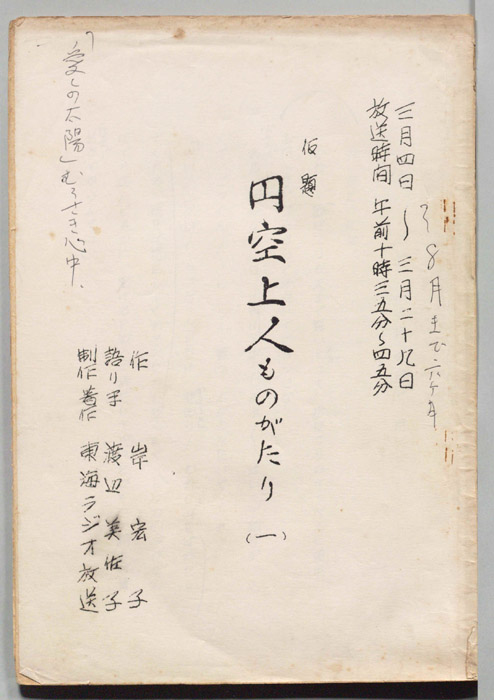 8月まで六ヶ月
三月四日〜三月二十九日
放送時間 午前十時三五分〜四五分
仮題
円空上人ものがたり
(一)
作 岸 宏子
語り手 渡辺美佐子
制作著作 東海ラジオ放送
「愛しの太陽」むらさき心中、